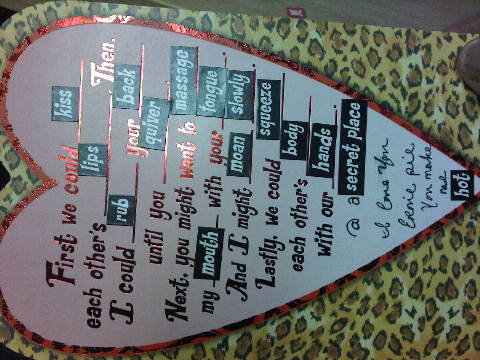 First we could kiss
each other's lips. Then,
I could rub your back
until you quiver.
Next, you might want to massage
my mouth with your tongue.
And I might moan slowly.
Lastly, we could squeeze
each other's body
with our hands.
@ a secret place
I love you
Ernie pie.
You make
me
hot